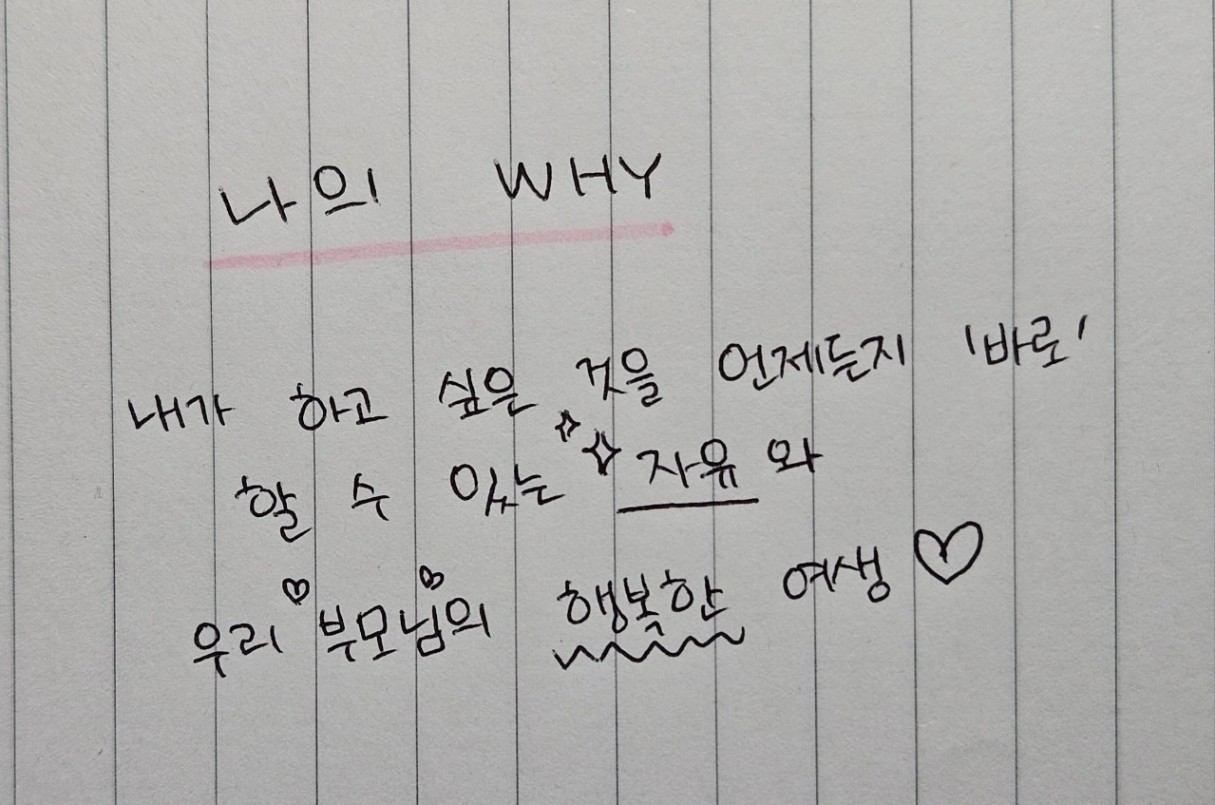 나의 WHY
내가 하고 싶은 것을 언제든지 '바로'
할 수 있는 자유와
우리 부모님의 행복한 여생